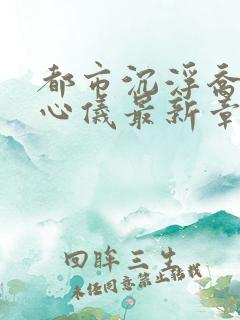 都市沉浮乔
心仪最新章
回眸三生
未经同意禁止转载